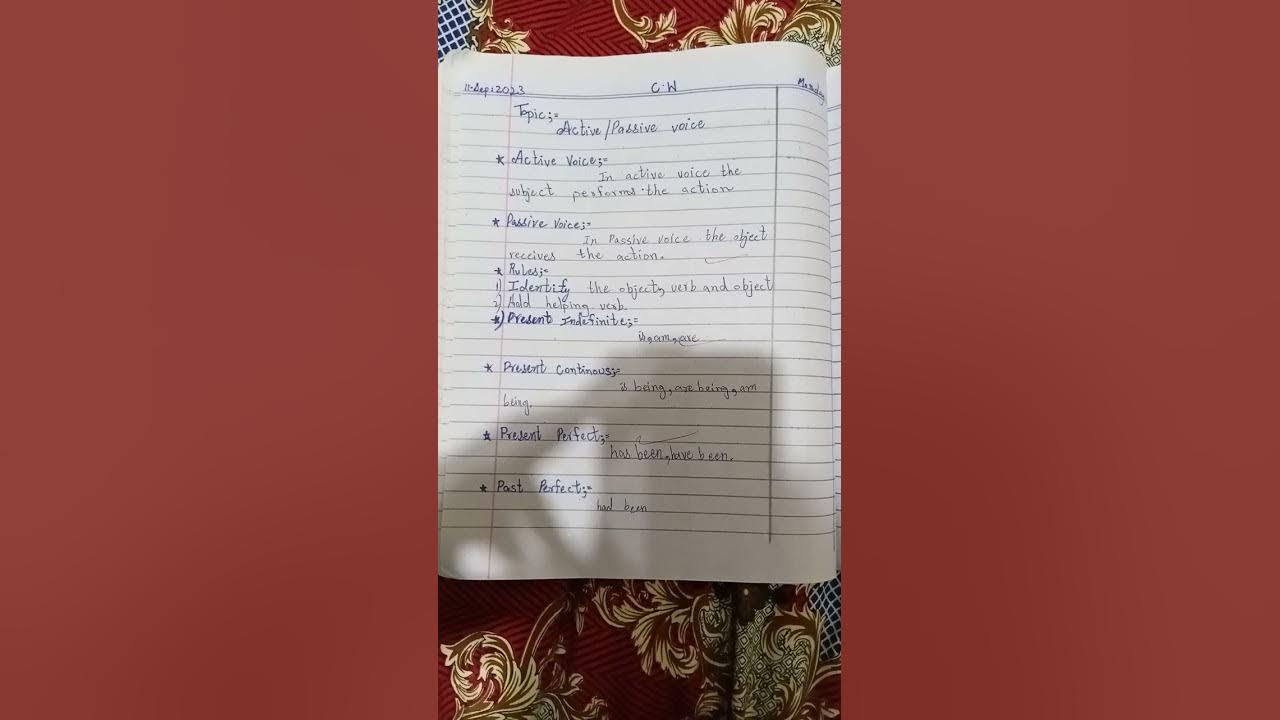 11-Sep:2023 C.W Monday
Topic;=
Active/Passive voice
* Active Voice;=
In active voice the
subject performs the action
* Passive Voice;=
In Passive voice the object
receives the action.
* Rules;=
1) Identify the object, verb and object
2) Add helping verb.
*) Present Indefinite;=
is, am, are
* Present Continous;=
is being, are being, am
being.
* Present Perfect;=
has been, have been.
* Past Perfect;=
had been